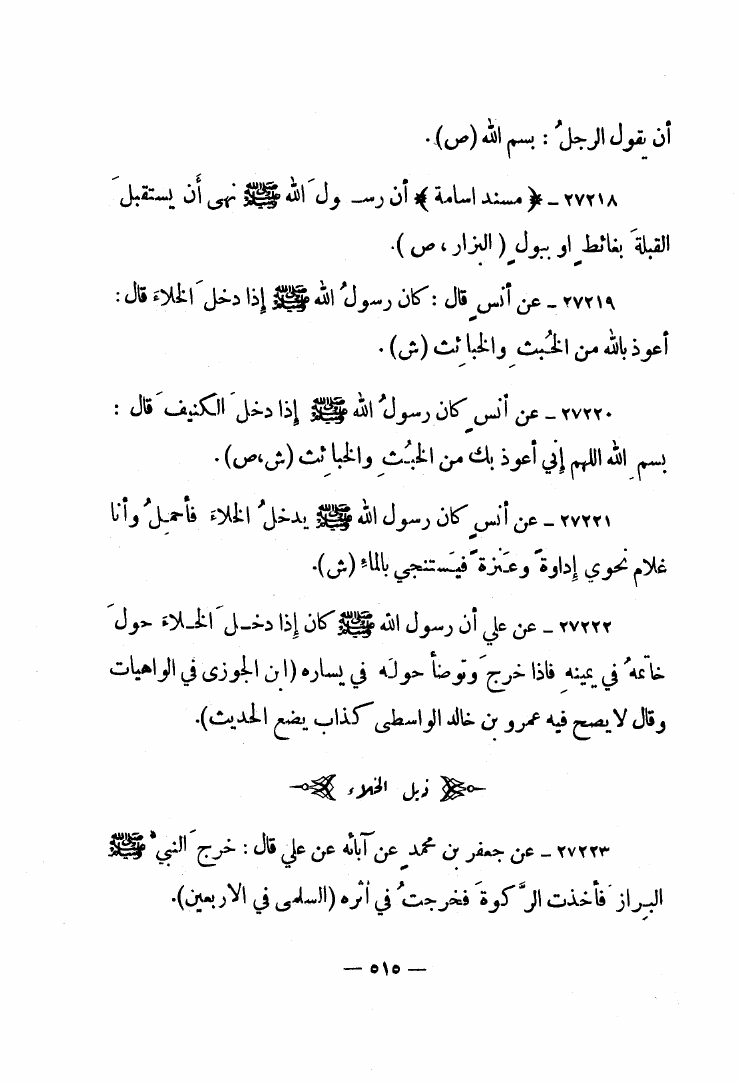 أن يقول الرجلُ : بسم الله (ص).
٢٧٢١٨ ـ ﴿ مسند اسامة ﴾ أن رسـولَ الله ﷺ نهى أن يستقبلَ
القبلةَ بغائطٍ او ببولٍ ( البزار ، ص ).
٢٧٢١٩ ـ عن أنسٍ قال : كان رسولُ الله ﷺ إذا دخلَ الخلاءَ قال :
أعوذ بالله من الخُبثِ والخبائث (ش) .
٢٧٢٢٠ ـ عن أنسٍ كان رسولُ الله ﷺ إذا دخلَ الكنيفَ قال :
بسمِ الله اللهم إني أعوذ بك من الخبُثِ والخبائث (ش،ص).
٢٧٢٢١ ـ عن أنسٍ كان رسول الله ﷺ يدخلُ الخلاءَ فأحملُ وأنا
غلام نحوي إداوةً وعَنزةً فيَستنجي بالماءِ (ش).
٢٧٢٢٢ ـ عن علي أن رسول الله ﷺ كان إذا دخـلَ الخـلاءَ حولَ
خاتمهُ في يمينهِ فاذا خرجَ وتوضأ حولَه في يساره (ابن الجوزى في الواهيات
وقال لا يصح فيه عمرو بن خالد الواسطى كذاب يضع الحديث).
ذيل الخلاء
٢٧٢٢٣ ـ عن جعفر بن محمدٍ عن آبائه عن علي قال : خرجَ النبيُّ ﷺ
البِرازَ فأخذت الرَّكوةَ فخرجتُ في أثره (السلمى في الاربعين).
— ٥١٥ —